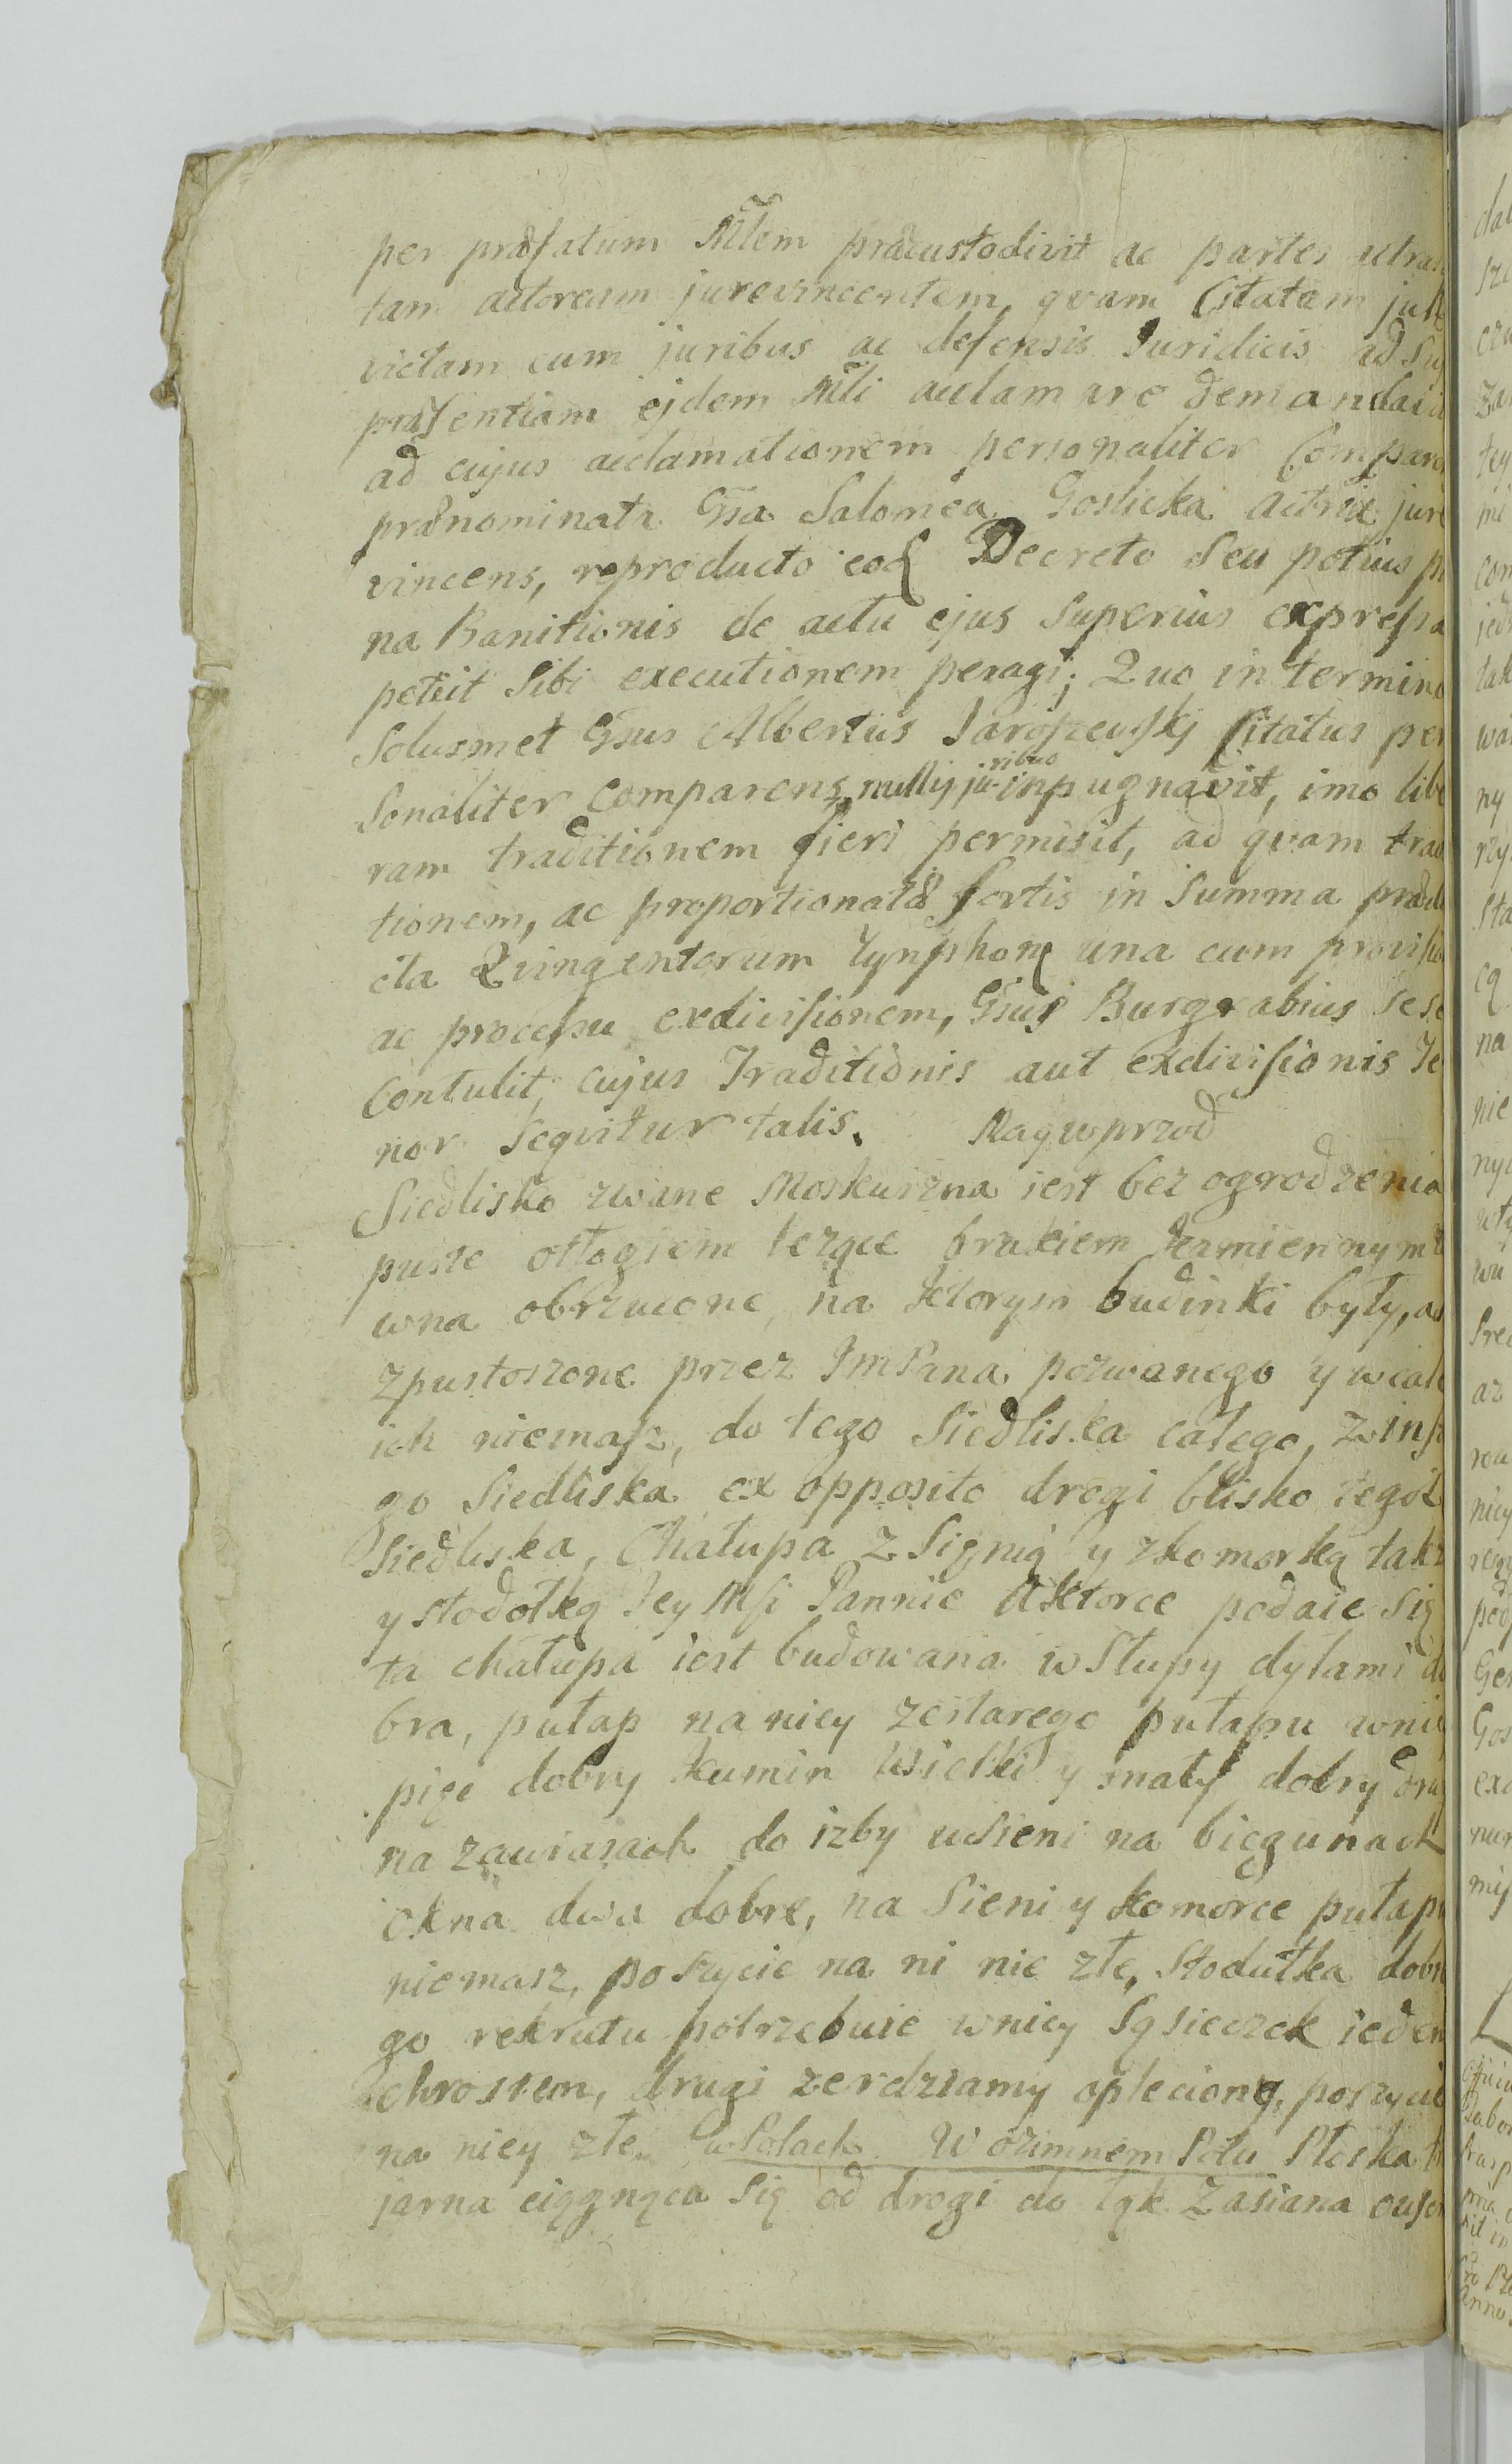 per præfatum Mlem præcustodivit ac partes utram
tam actoream jurevincentem, qvam Citatam jure
victam cum juribus ac defensis Juridicis ad sui
præsentiam ejdem Mli acclamare demandavit
ad cujus acclamationem personaliter Compare
prænominata Gsa Salomea Goslicka Actrix jure
vincens, reproducto eod Decreto seu potius
na Banitionis de actu ejus superius expressa
petiit sibi executionem peragi; Quo in termino
Solusmet Gsus Albertus Jaroszewskj Citatus per
sonaliter comparens, nullij juribus inpugnavit, imo libe
ram traditionem fieri permisit, ad qvam trad
tionem, ac proportionatæ sortis in Summa prædi
cta Qvingentorum tynphon una cum provisio
ac processu exdivisionem, Gsus Burgrabius sese
Contulit, cujus Traditionis aut exdivisionis Te
nor seqvitur talis. Naywprzod
Siedlisko zwane Moskwizna iest bez ogrodzenia
puste odłogiem leżące brukiem kamiennym
wna obrzucone, na ktorym budinki były, a
zpustoszone przez JmPana pozwanego y wcale
ich niemasz, do tego Siedliska całego, z insze
go Siedliska ex opposito drogi blisko tegoż
Siedliska, Chałupa z Signią y zkomorką takż
y stodołką Jey Msi Pannie Aktorce podaie się
ta chałupa iest budowana w słupy dylami do
bra, pułap na niey zestarego pułapu wniey
piec dobry kumin wielki y mały dobry drzwi
na zawiasach do izby wsieni na biegunach
okna dwa dobre, na sieni y komorce pułapu
niemasz, poszycie na ni nie złe, stodułka
go rekrutu potrzebuie wniey sąsieczek ieden
chrostem, drugi zerdziamy opleciony, poszycie
na niey złe. w Polach W ozimnem Polu Płoska
jarna ciągnąca się od drogi do łąk zasiana owsem